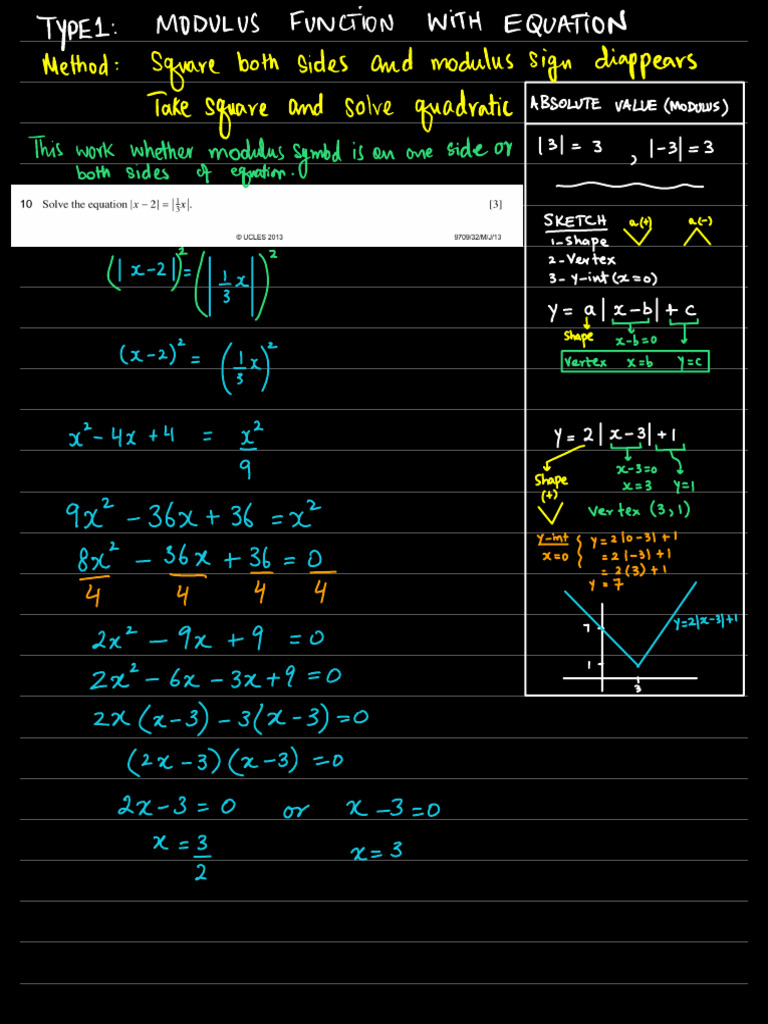 TYPE1: MODULUS FUNCTION WITH EQUATION
Method: Square both sides and modulus sign diappears
Take square and solve quadratic
This work whether modulus symbol is on one side or
both sides of equation.
10 Solve the equation |x − 2| = |⅓x|. [3]
© UCLES 2013 9709/32/M/J/13
(|x-2|)² = (|1/3 x|)²
(x-2)² = (1/3 x)²
x² - 4x + 4 = x²/9
9x² - 36x + 36 = x²
8x²/4 - 36x/4 + 36/4 = 0/4
2x² - 9x + 9 = 0
2x² - 6x - 3x + 9 = 0
2x(x-3) - 3(x-3) = 0
(2x-3)(x-3) = 0
2x-3 = 0 or x-3 = 0
x = 3/2 x = 3
ABSOLUTE VALUE (MODULUS)
|3| = 3 , |-3| = 3
SKETCH a(+) a(-)
1- Shape
2- Vertex
3- Y-int (x=0)
y = a|x-b| + c
Shape x-b=0
Vertex x=b y=c
y = 2|x-3| + 1
Shape x-3=0
(+) x=3 y=1
Vertex (3, 1)
y-int y = 2|0-3|+1
x=0 = 2|-3|+1
= 2(3)+1
y = 7
7 y=2|x-3|+1
1
3